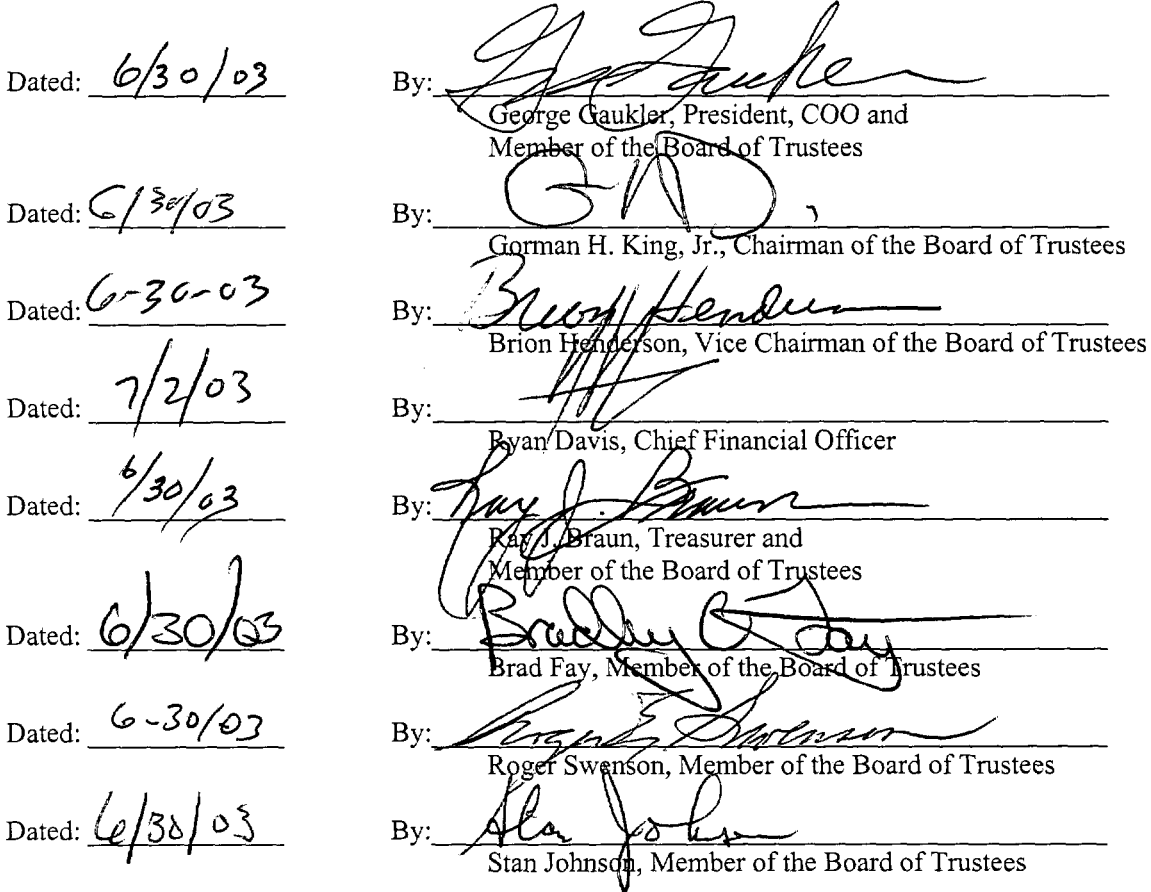 Dated: 6/30/03 By:
George Gaukler, President, COO and
Member of the Board of Trustees
Dated: 6/30/03 By:
Gorman H. King, Jr., Chairman of the Board of Trustees
Dated: 6-30-03 By: Henderson
Brion Henderson, Vice Chairman of the Board of Trustees
Dated: 7/2/03 By:
Ryan Davis, Chief Financial Officer
Dated: 6/30/03 By: Ray J. Braun
Ray J. Braun, Treasurer and
Member of the Board of Trustees
Dated: 6/30/03 By: Bradley Fay
Brad Fay, Member of the Board of Trustees
Dated: 6-30/03 By: Roger E Swenson
Roger Swenson, Member of the Board of Trustees
Dated: 6/30/03 By: Stan Johnson
Stan Johnson, Member of the Board of Trustees